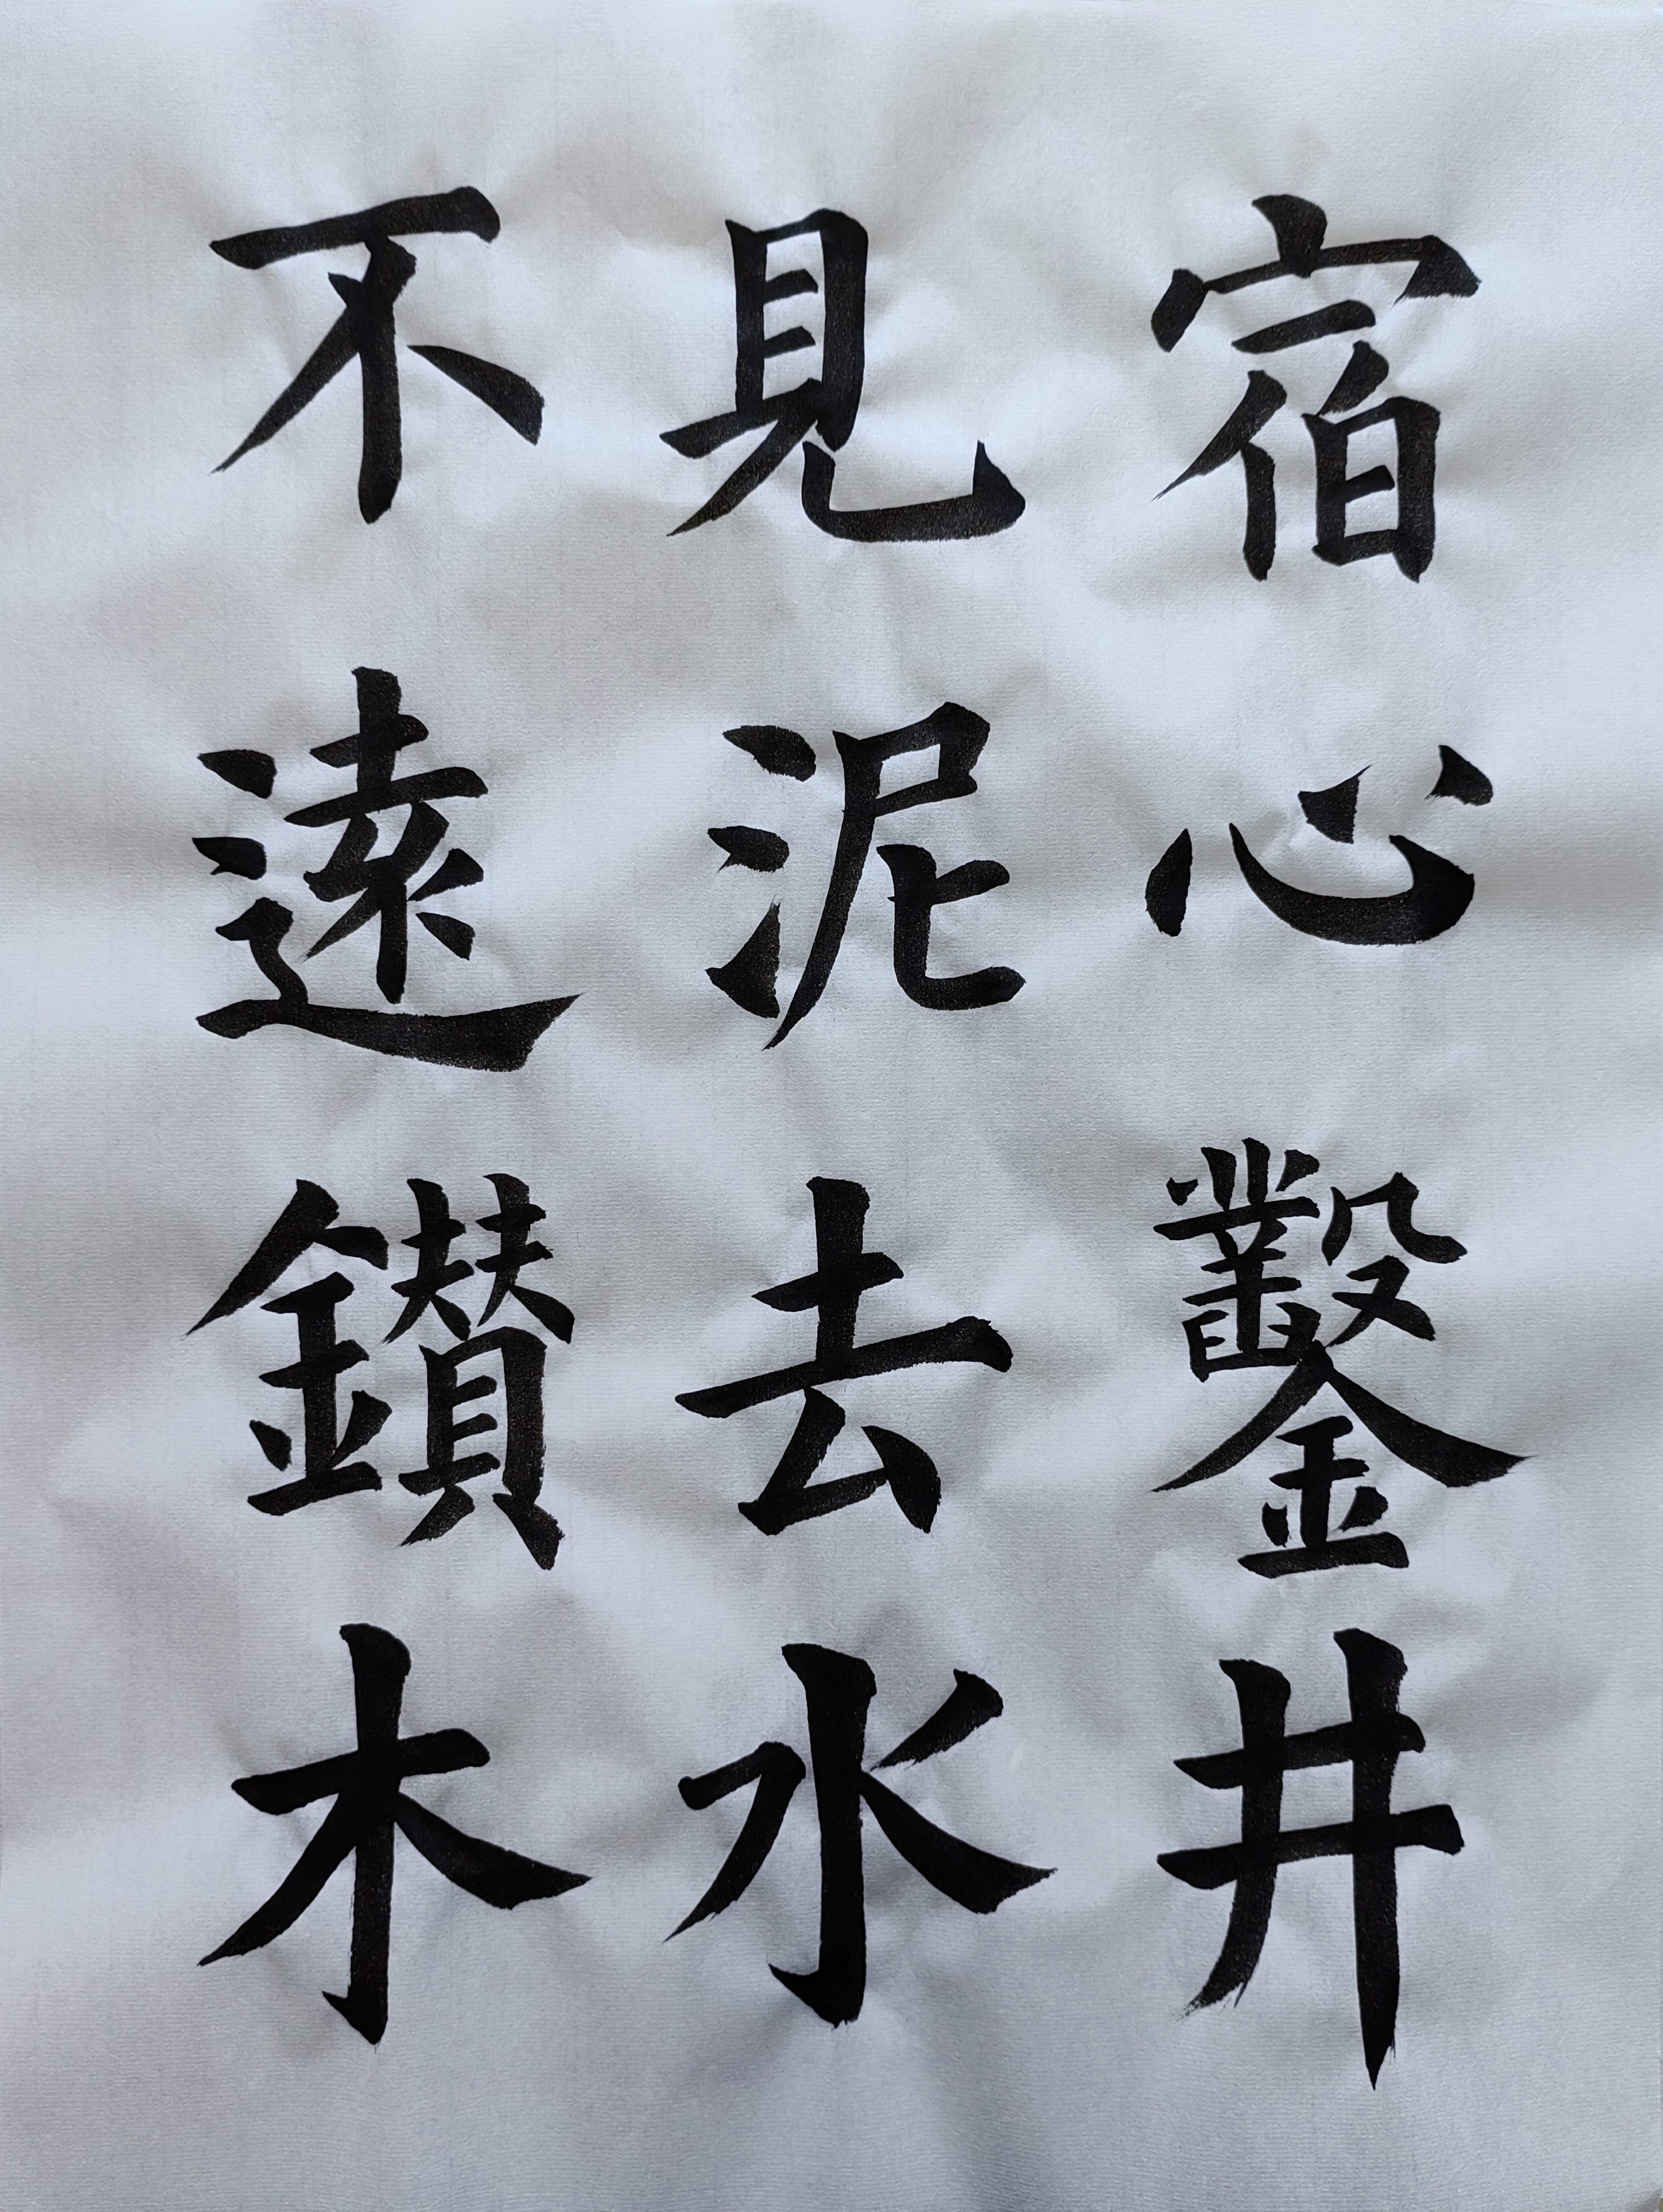 宿心鑿井
見泥去水
不遠鑽木